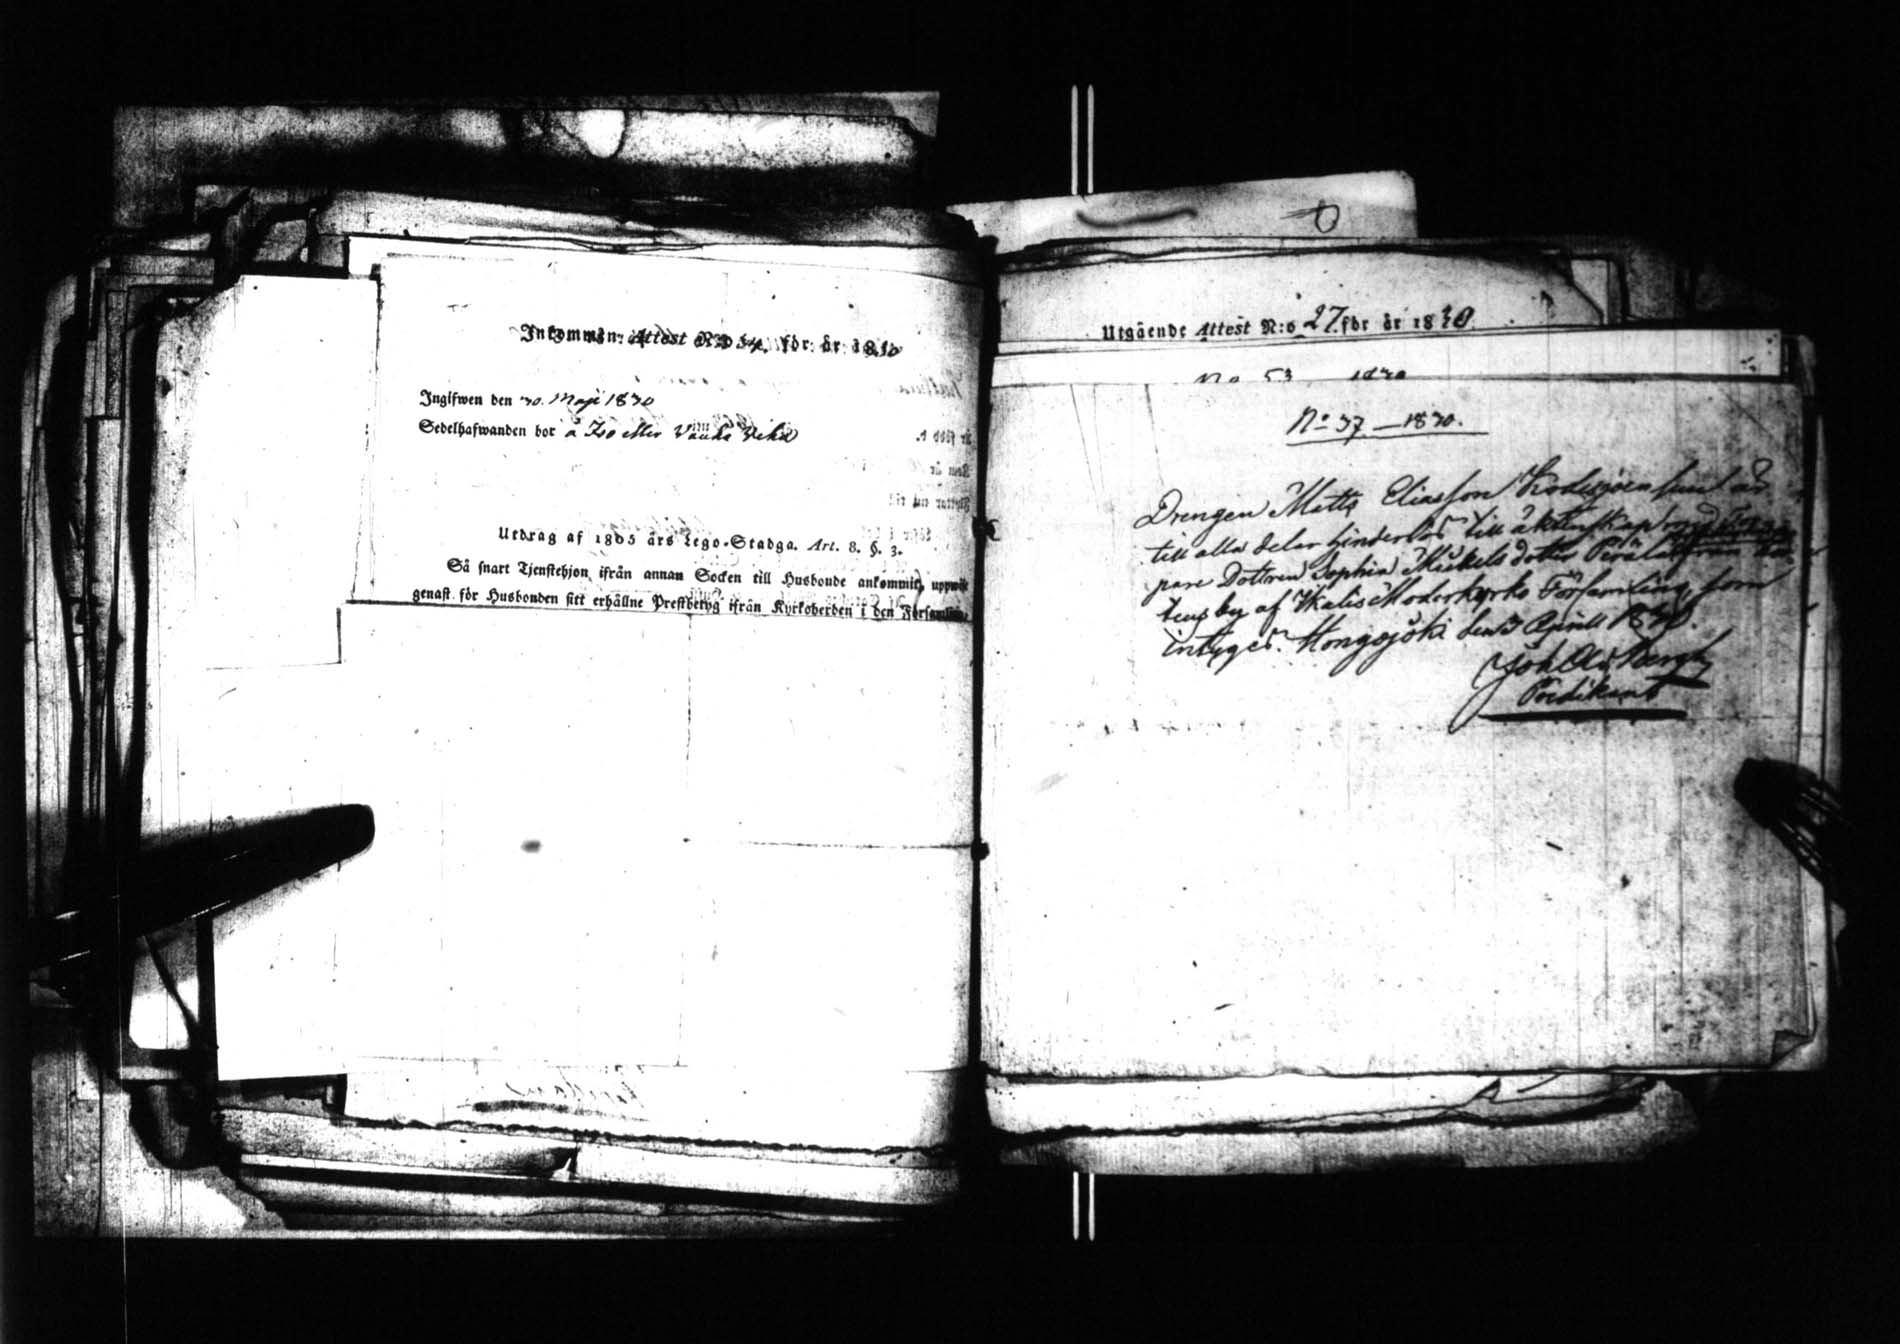 Inkommen: Attest N:o 34. för år 1830
Ingifwen den 30. Maji 1830
Sedelhafwanden bor å Iso eller Vanha
Utdrag af 1805 års Lego-Stadga. Art. 8. §. 3.
Så snart Tjenstehjon ifrån annan Socken till Husbonde ankommit, uppwise
genast för Husbonden sitt erhållne Prestbetyg ifrån Kyrkoherden i den Församling,
Utgående Attest N:o 27 för år 1830
No 53 1830
No 37 – 1830.
Drengen Matts Eliasson
till alla delar hinderlös till äktenskap med
pare Dottren Sophia Mickelsdotter
by af Moderkyrko Församling, som
intygas. Hongojoki den 3 April 1830.
Joh Ol: Bergh
Predikant